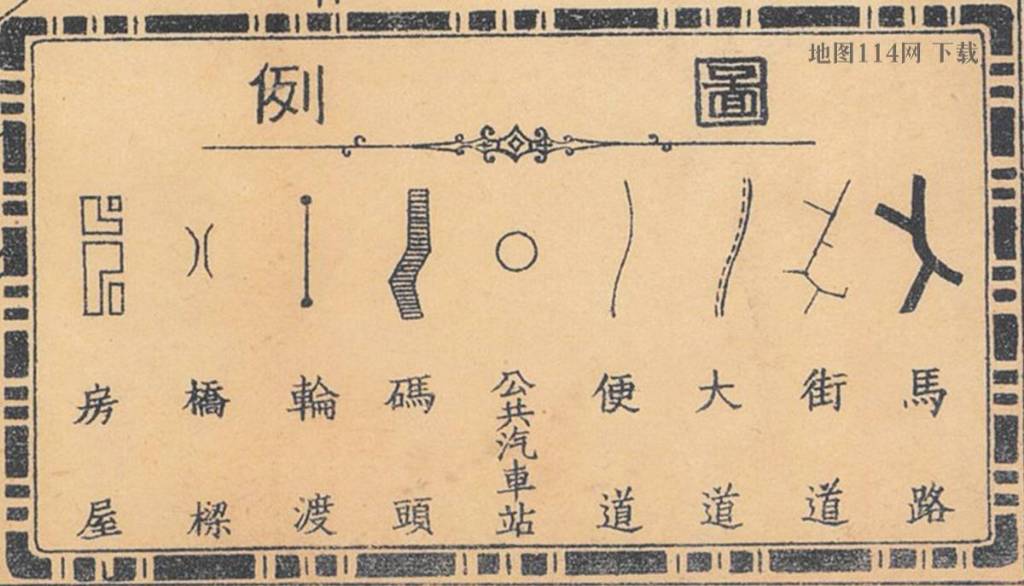 地图114网 下载
圖例
馬路
街道
大道
便道
公共汽車站
碼頭
輪渡
橋樑
房屋